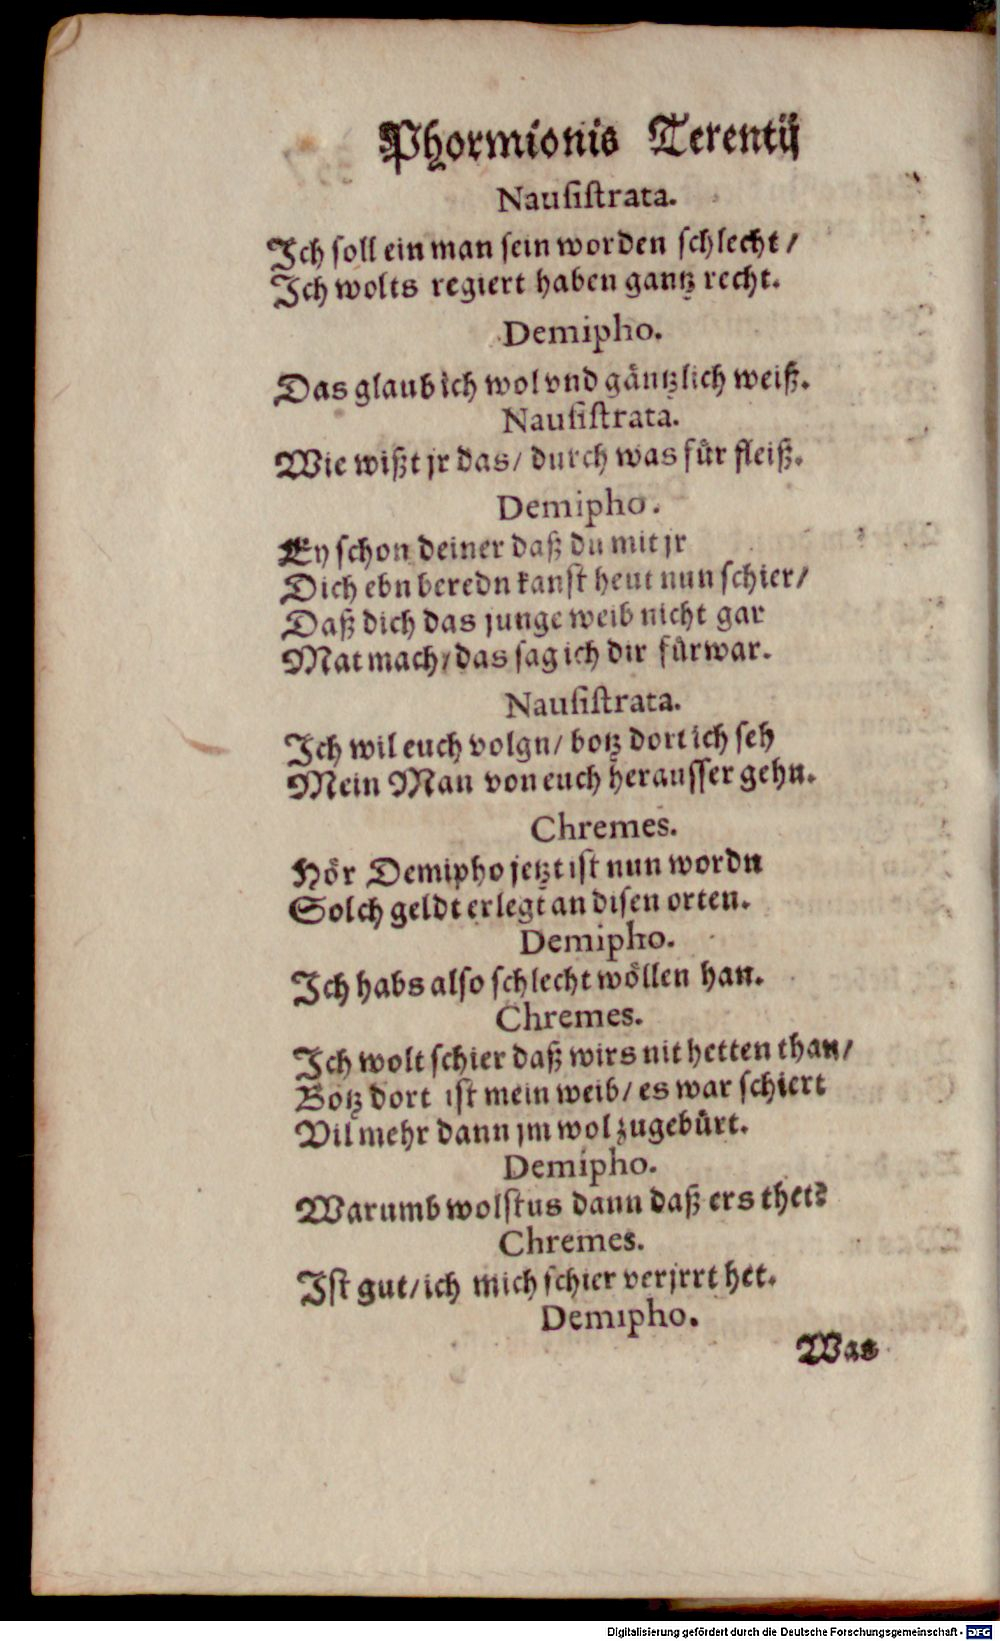 Phormionis Terentij
Nausistrata.
Ich soll ein man sein worden schlecht /
Ich wolts regiert haben gantz recht.
Demipho.
Das glaub ich wol vnd gäntzlich weiß.
Nausistrata.
Wie wißt jr das / durch was für fleiß.
Demipho.
Ey schon deiner daß du mit jr
Dich ebn beredn kanst heut nun schier /
Daß dich das junge weib nicht gar
Mat mach / das sag ich dir fürwar.
Nausistrata.
Ich wil euch volgn / botz dort ich seh
Mein Man von euch herausser gehn.
Chremes.
Hör Demipho jetzt ist nun wordn
Solch geldt erlegt an disen orten.
Demipho.
Ich habs also schlecht wöllen han.
Chremes.
Ich wolt schier daß wirs nit hetten than /
Botz dort ist mein weib / es war schiert
Vil mehr dann jm wol zugebürt.
Demipho.
Warumb wolstus dann daß ers thet?
Chremes.
Ist gut / ich mich schier verjrrt het.
Demipho.
Was
Digitalisierung gefördert durch die Deutsche Forschungsgemeinschaft - DFG